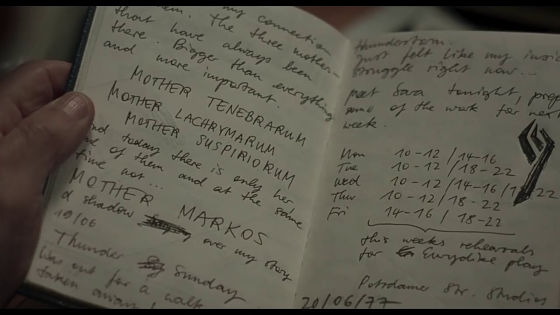 my connection
them. The three mothers
that have always been
there. Bigger than everything
and more important.
MOTHER TENEBRARUM
MOTHER LACHRYMARUM
MOTHER SUSPIRIORUM
And today there is only her
of them and at the same
time not...
MOTHER MARKOS
a shadow over my story
19/06
Thunder Sunday
Was out for a walk
taken
thunderstorm.
Just felt like my
struggle right now...
meet Sara tonight,
some of the work for next
week.
Mon 10-12 / 14-16
Tue 10-12 / 18-22
Wed 10-12 / 14-16 / 18-22
Thur 10-12 / 18-22
Fri 14-16 / 18-22
this weeks rehearsals
for Eurydike play
Potsdamer Str. Studios
20/06/77